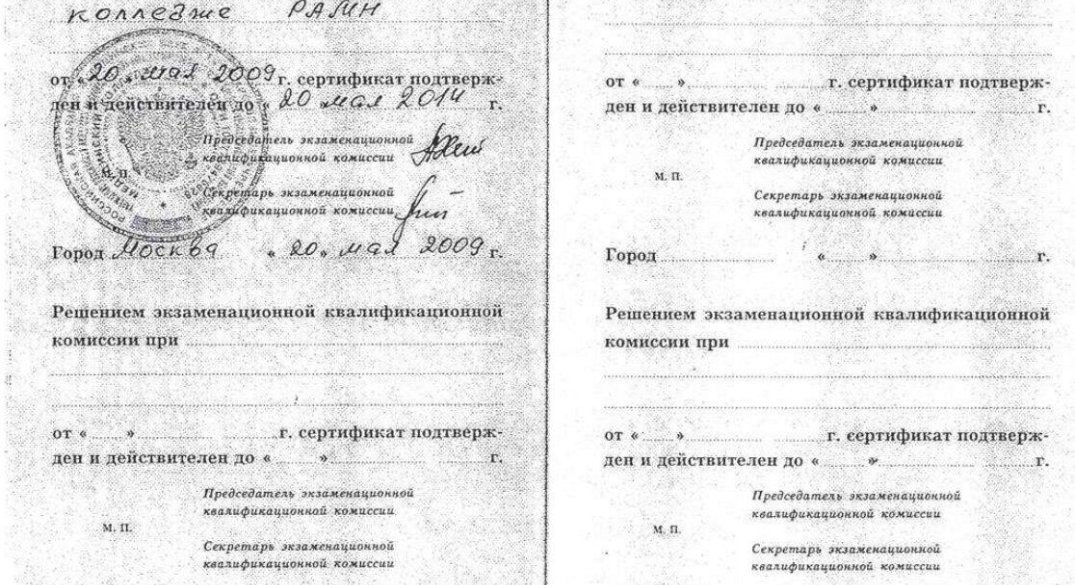 колледже РАМН
от «20» мая 2009 г. сертификат подтверж-
ден и действителен до «20 мая 2014 г.
Председатель экзаменационной
квалификационной комиссии
М. П.
Секретарь экзаменационной
квалификационной комиссии
Город Москва «20» мая 2009 г.
Решением экзаменационной квалификационной
комиссии при
от « » г. сертификат подтверж-
ден и действителен до « » г.
Председатель экзаменационной
квалификационной комиссии
М. П.
Секретарь экзаменационной
квалификационной комиссии
от « » г. сертификат подтверж-
ден и действителен до « » г.
Председатель экзаменационной
квалификационной комиссии
М. П.
Секретарь экзаменационной
квалификационной комиссии
Город « » г.
Решением экзаменационной квалификационной
комиссии при
от « » г. сертификат подтверж-
ден и действителен до « » г.
Председатель экзаменационной
квалификационной комиссии
М. П.
Секретарь экзаменационной
квалификационной комиссии